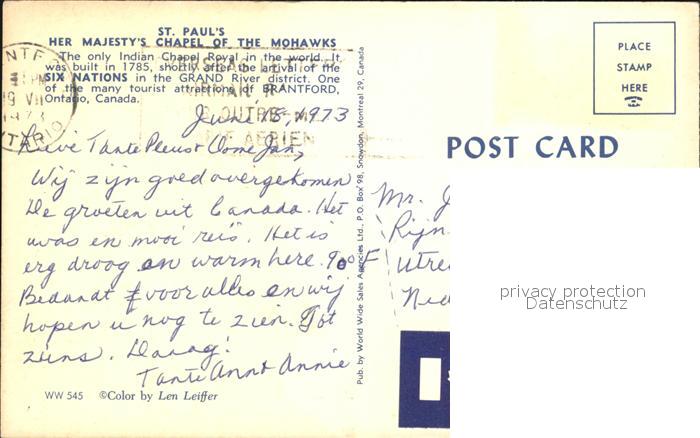 ST. PAUL'S
HER MAJESTY'S CHAPEL OF THE MOHAWKS
The only Indian Chapel Royal in the world. It
was built in 1785, shortly after the arrival of the
SIX NATIONS in the GRAND River district. One
of the many tourist attractions of BRANTFORD,
Ontario, Canada.
June 18, 1973
Lieve Tante Pleust Oome Jan,
Wij zijn goed overgekomen
De groeten uit Canada. Het
was en mooi reis. Het is
erg droog en warm here. F
Bedandt voor alles en wij
hopen u nog te zien. Tot
ziens. Daaag!
Tante Ann & Annie
WW 545 ©Color by Len Leiffer
Pub. by World Wide Sales Agencies Ltd., P.O. Box 98, Snowdon, Montreal 29, Canada
PLACE
STAMP
HERE
POST CARD
Mr. J
Rijn
Utre
Ned
privacy protection
Datenschutz
OUTRE-M
AERIEN